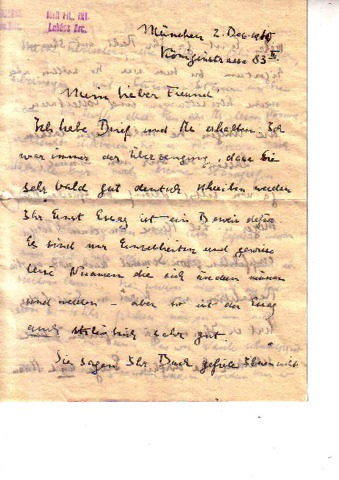 MTA FIL. INT.
Lukács Arc.
München 2. Dez.
Königinstrasse 83 II
Mein lieber Freund!
Ich habe Brief und Ms erhalten. Ich
war immer der Überzeugung, dass Sie
sehr bald gut deutsch schreiben werden
Ihr Ernst Essay ist ein Beweis dafür
Es sind nur Einzelheiten und gewisse
feine Nüancen die sich ändern müssen
und werden – aber so ist der Essay
auch stilistisch sehr gut.
Sie sagen Ihr Buch gefiele Ihnen nicht